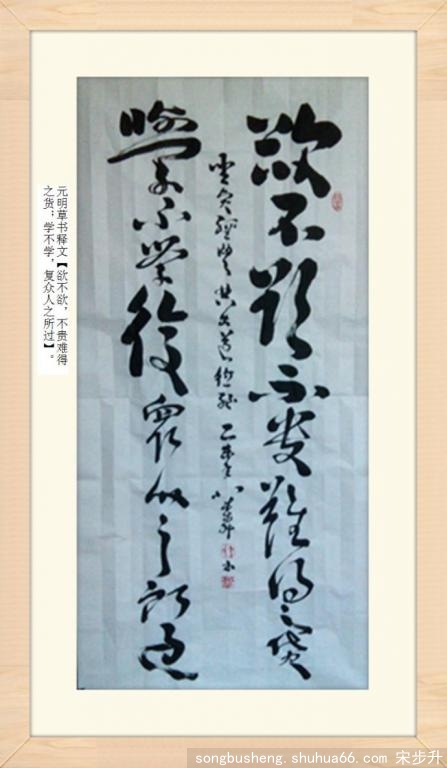 欲不欲不貴難得之貨
學不學復衆人之所過
元明草书释文【欲不欲，不贵难得
之货；学不学，复众人之所过】。
songbusheng.shuhua66.com 宋步升